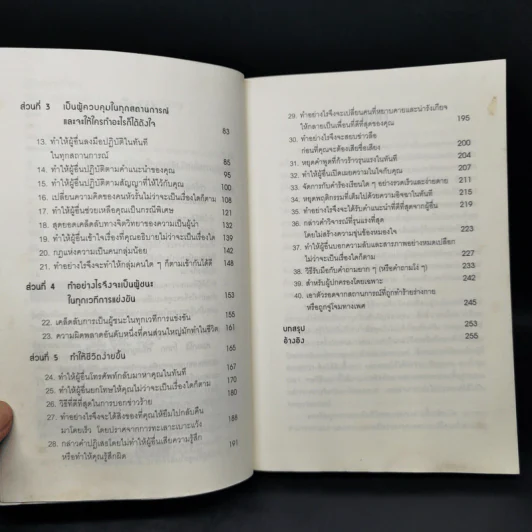 ส่วนที่ 3 เป็นผู้ควบคุมในทุกสถานการณ์
และจงให้ใครทำอะไรก็ได้ดังใจ 83
13. ทำให้ผู้อื่นลงมือปฏิบัติในทันที
ในทุกสถานการณ์ 85
14. ทำให้ผู้อื่นปฏิบัติตามคำแนะนำของคุณ 95
15. ทำให้ผู้อื่นปฏิบัติตามสัญญาที่ให้ไว้กับคุณ 100
16. เปลี่ยนความคิดของคนหัวรั้นไม่ว่าจะเป็นเรื่องใดก็ตาม 108
17. ทำให้ผู้อื่นช่วยเหลือคุณเป็นกรณีพิเศษ 121
18. สุดยอดเคล็ดลับทางจิตวิทยาของความเป็นผู้นำ 131
19. ทำให้ผู้อื่นเข้าใจเรื่องที่คุณอธิบายไม่ว่าจะเป็นเรื่องใด 139
20. กฎแห่งความเป็นคนกลุ่มน้อย 142
21. ทำอย่างไรจึงจะทำให้กลุ่มคนใด ๆ ก็ตามเข้ากันได้ดี 148
ส่วนที่ 4 ทำอย่างไรจึงจะเป็นผู้ชนะ
ในทุกเวทีการแข่งขัน 153
22. เคล็ดลับการเป็นผู้ชนะในทุกเวทีการแข่งขัน 155
23. ความผิดพลาดอันดับหนึ่งที่คนส่วนใหญ่มักทำในชีวิต 161
ส่วนที่ 5 ทำให้ชีวิตง่ายขึ้น 165
24. ทำให้ผู้อื่นโทรศัพท์กลับมาหาคุณในทันที 167
25. ทำให้ผู้อื่นยกโทษให้คุณไม่ว่าจะเป็นเรื่องใดก็ตาม 170
26. วิธีที่ดีที่สุดในการบอกข่าวร้าย 180
27. ทำอย่างไรจึงจะได้สิ่งของที่คุณให้ยืมไปกลับคืน
มาโดยเร็ว โดยปราศจากการทะเลาะเบาะแว้ง 188
28. กล่าวคำปฏิเสธโดยไม่ทำให้ผู้อื่นเสียความรู้สึก
หรือทำให้คุณรู้สึกผิด 191
29. ทำอย่างไรจึงจะเปลี่ยนคนที่หยาบคายและน่ารังเกียจ
ให้กลายเป็นเพื่อนที่ดีที่สุดของคุณ 195
30. ทำอย่างไรจึงจะสยบข่าวลือ
ก่อนที่คุณจะต้องเสียชื่อเสียง 200
31. หยุดคำพูดที่ก้าวร้าวรุนแรงในทันที 204
32. ทำให้ผู้อื่นเปิดเผยความในใจกับคุณ 207
33. จัดการกับคำร้องเรียนใด ๆ อย่างรวดเร็วและง่ายดาย 211
34. หยุดพฤติกรรมที่เต็มไปด้วยความอิจฉาในทันที 215
35. ทำอย่างไรจึงจะได้รับคำแนะนำที่ดีที่สุดจากผู้อื่น 219
36. กล่าวคำวิจารณ์ที่รุนแรงที่สุด
โดยไม่สร้างความขุ่นข้องหมองใจ 223
37. ทำให้ผู้อื่นบอกความลับและสารภาพอย่างหมดเปลือก
ไม่ว่าจะเป็นเรื่องใดก็ตาม 227
38. วิธีรับมือกับคำถามยาก ๆ (หรือคำถามโง่ ๆ) 233
39. สำหรับผู้ปกครองโดยเฉพาะ 237
40. เอาตัวรอดจากสถานการณ์ที่ถูกทำร้ายร่างกาย
หรือถูกขู่โจมทางเพศ 245
บทสรุป 253
อ้างอิง 255